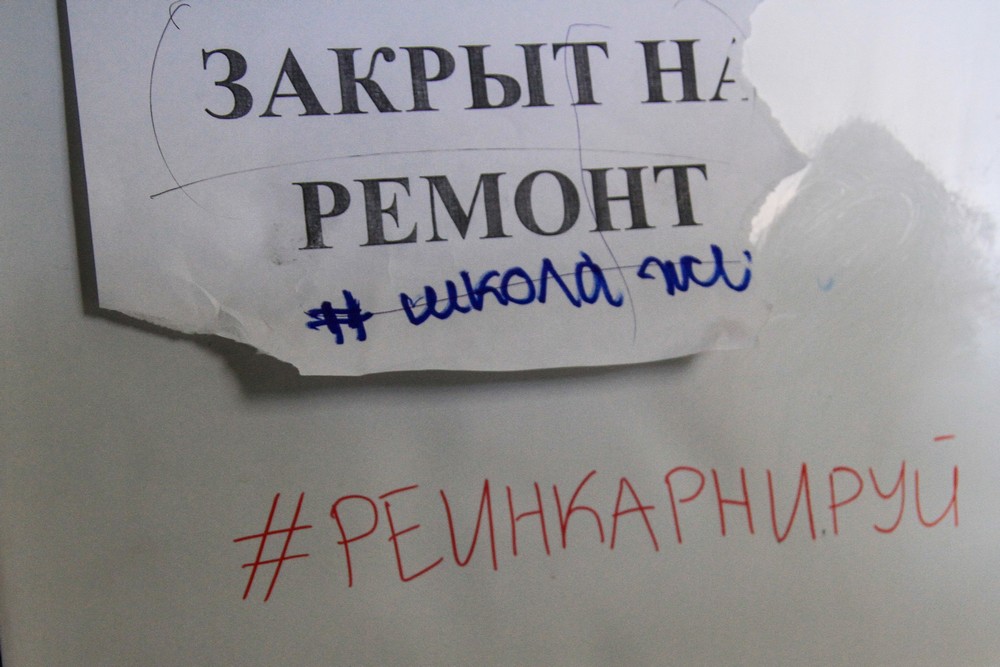 ЗАКРЫТ НА
РЕМОНТ
# школа жи
#РЕИНКАРНИРУЙ